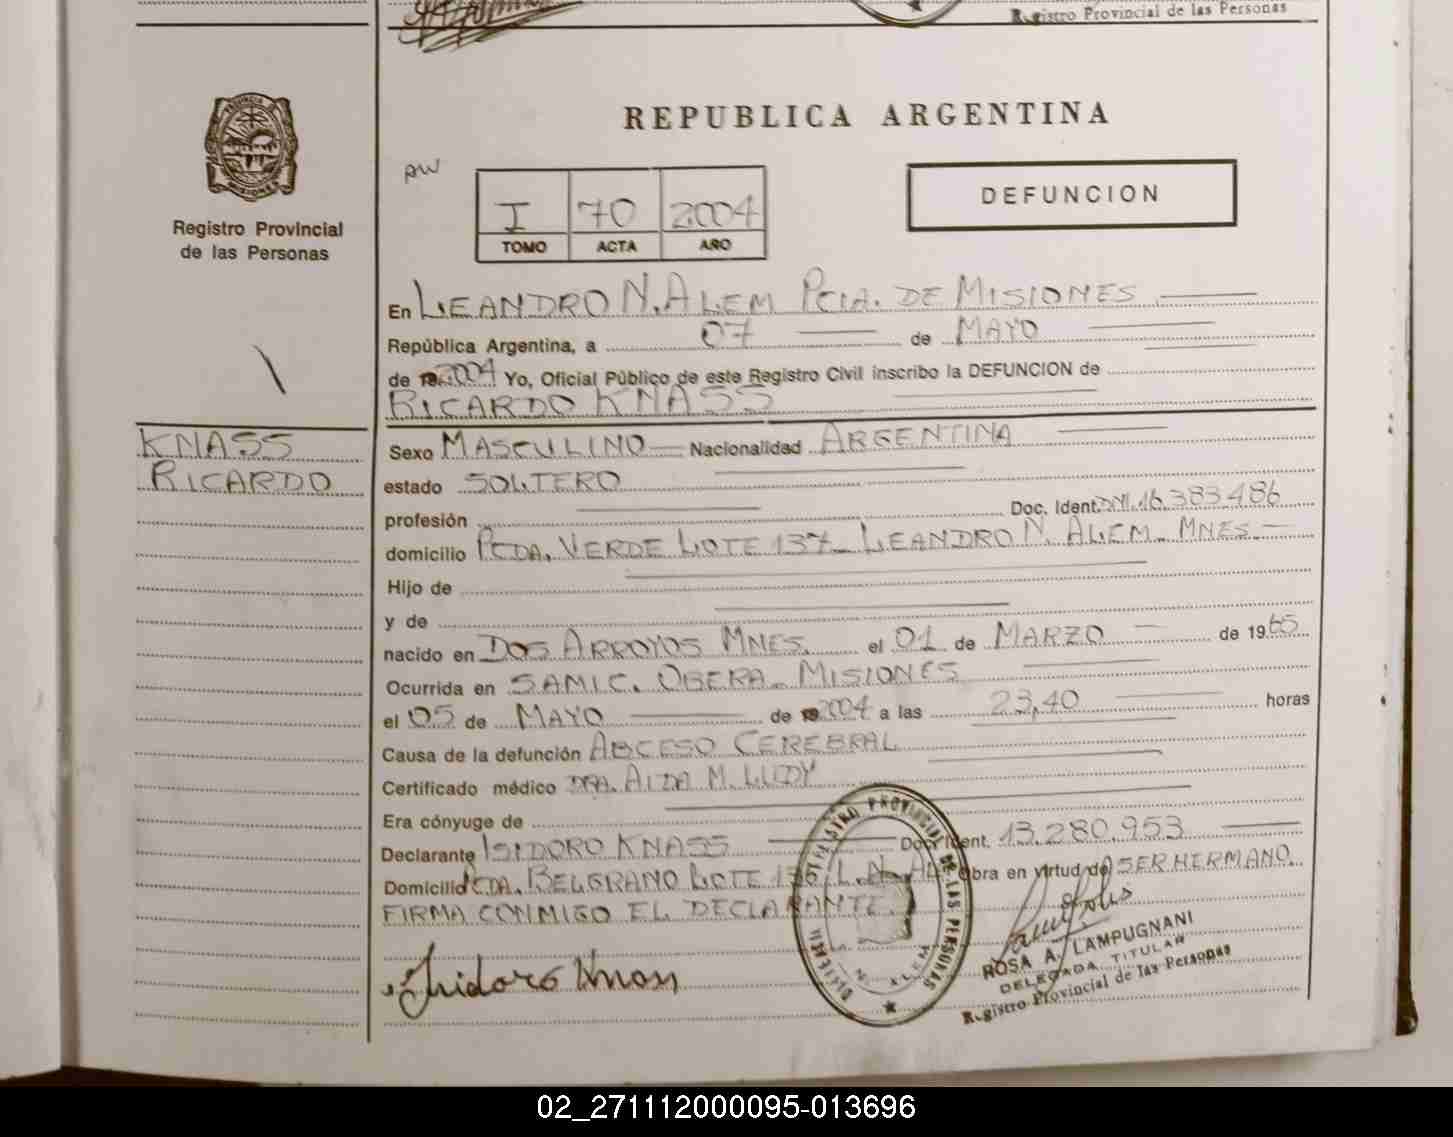 Registro Provincial de las Personas
PROVINCIA DE
MISIONES
Registro Provincial
de las Personas
KNASS
RICARDO
REPUBLICA ARGENTINA
AW
I 70 2004
TOMO ACTA AÑO
DEFUNCION
En LEANDRO N. ALEM PCIA. DE MISIONES
República Argentina, a 07 de MAYO
de 2004 Yo, Oficial Público de este Registro Civil inscribo la DEFUNCION de
RICARDO KNASS
Sexo MASCULINO Nacionalidad ARGENTINA
estado SOLTERO
profesión Doc. Ident. DNI. 16.383.486
domicilio PCDA. VERDE LOTE 137_ LEANDRO N. ALEM_ MNES_
Hijo de
y de
nacido en DOS ARROYOS MNES. el 01 de MARZO de 1965
Ocurrida en SAMIC. OBERA_ MISIONES
el 05 de MAYO de 2004 a las 23,40 horas
Causa de la defunción ABCESO CEREBRAL
Certificado médico DRA. AIDA M. LUDY
Era cónyuge de
Declarante ISIDORO KNASS Doc. Ident. 13.280.953
Domicilio PCDA. BELGRANO LOTE 136/L.N. AL Obra en virtud de SER HERMANO.
FIRMA CONMIGO EL DECLARANTE.
REGISTRO PROVINCIAL DE LAS PERSONAS
N. ALEM
Isidoro Knass
ROSA A. LAMPUGNANI
DELEGADA TITULAR
Registro Provincial de las Personas
02_271112000095-013696